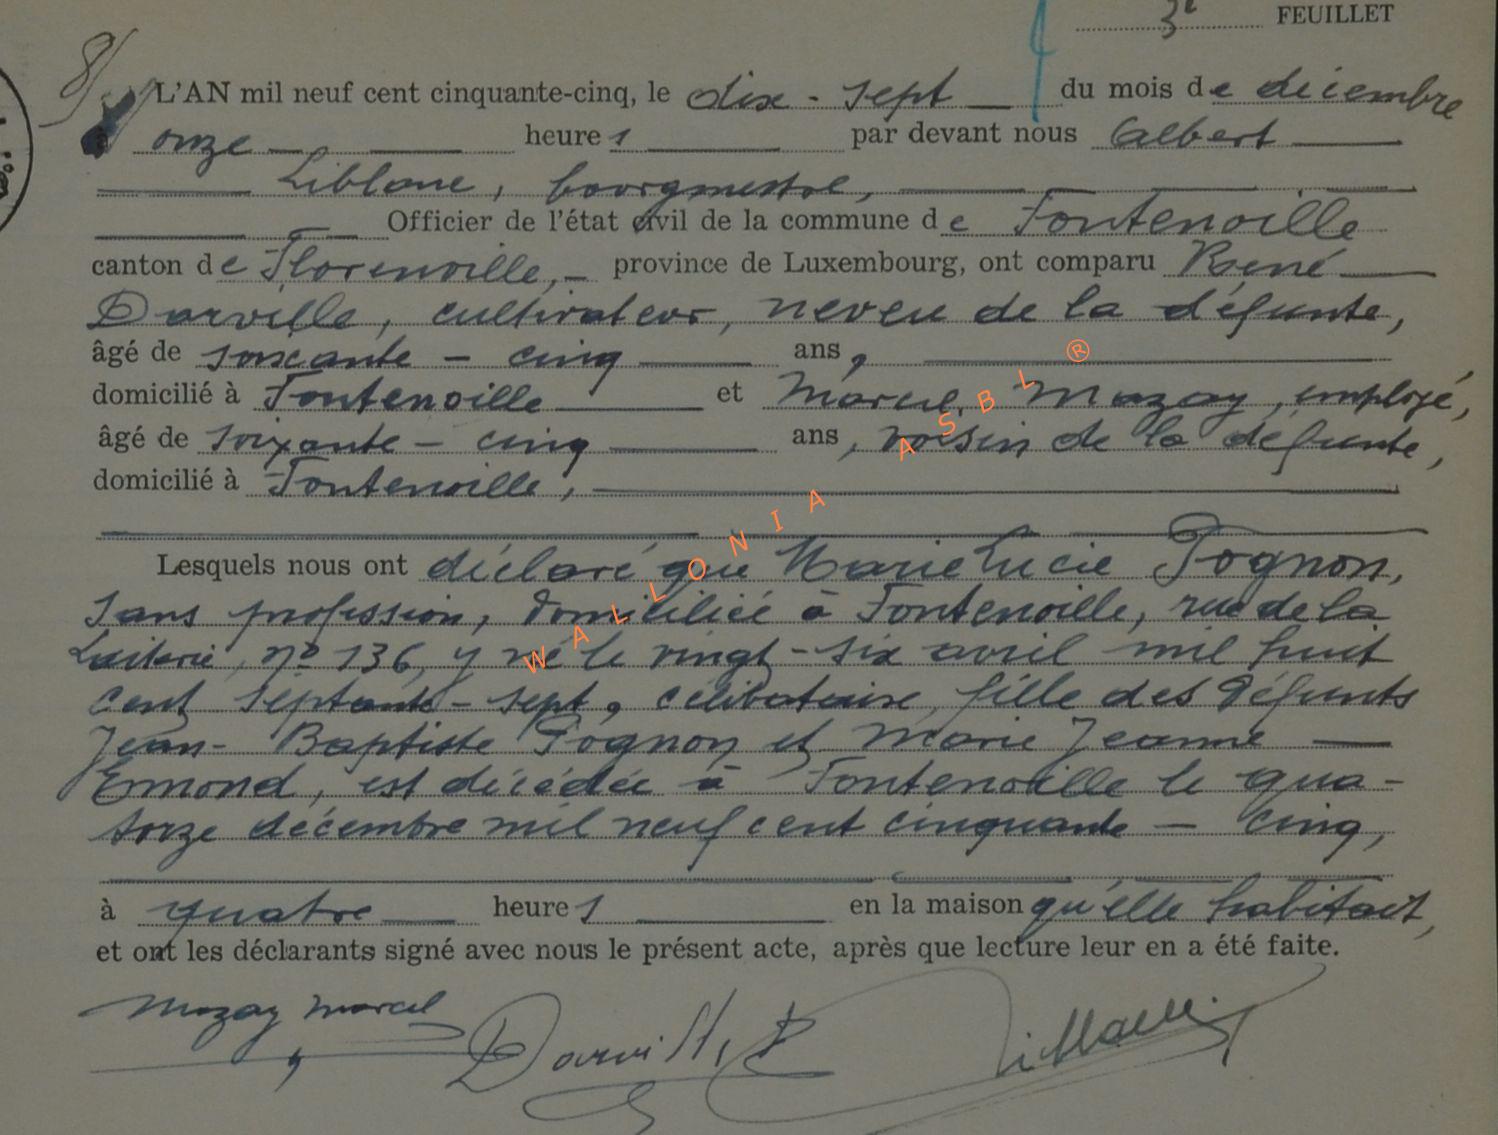 3e FEUILLET
8/
L'AN mil neuf cent cinquante-cinq, le dix-sept du mois de décembre
à onze heures par devant nous Albert
Liblanc, bourgmestre,
Officier de l'état civil de la commune de Fontenoille
canton de Florenville, province de Luxembourg, ont comparu René
Darville, cultivateur, neveu de la défunte,
âgé de soixante-cinq ans,
domicilié à Fontenoille et Marcel Mazay, employé,
âgé de soixante-cinq ans, voisin de la défunte,
domicilié à Fontenoille,
Lesquels nous ont déclaré que Marie Lucie Pognon,
sans profession, domiciliée à Fontenoille, rue de la
Laiterie, n° 136, y né le vingt-six avril mil huit
cent septante-sept, célibataire, fille des défunts
Jean-Baptiste Pognon et Marie Jeanne
Emond, est décédée à Fontenoille le qua-
torze décembre mil neuf cent cinquante-cinq,
à quatre heures en la maison qu'elle habitait,
et ont les déclarants signé avec nous le présent acte, après que lecture leur en a été faite.
Mazay Marcel Darville R
WALLONIA ASBL ®